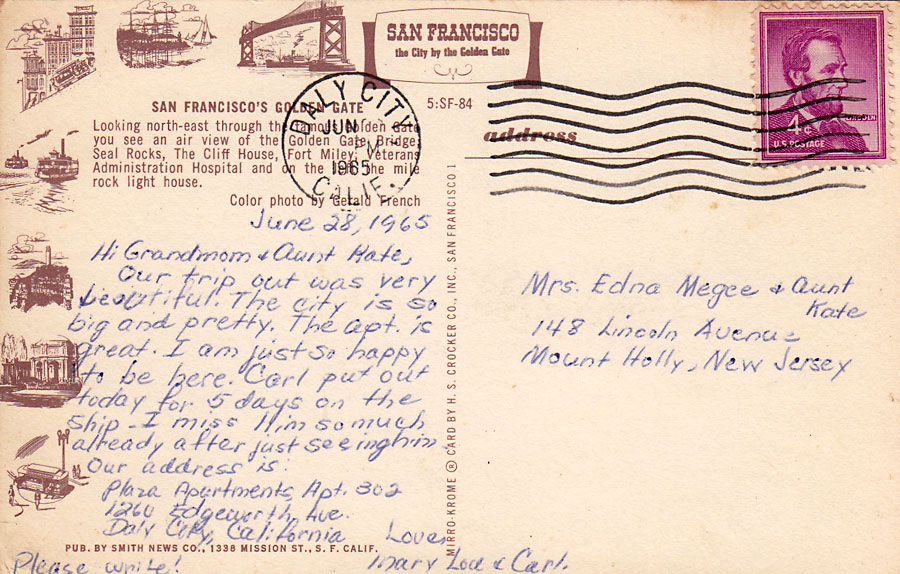 SAN FRANCISCO
the City by the Golden Gate
SAN FRANCISCO'S GOLDEN GATE
5:SF-84
Looking north-east through the famous Golden Gate
you see an air view of the Golden Gate Bridge,
Seal Rocks, The Cliff House, Fort Miley, Veterans
Administration Hospital and on the left the mile
rock light house.
Color photo by Gerald French
DALY CITY
JUN
PM
1965
CALIF.
address
LINCOLN
4¢
U.S. POSTAGE
June 28, 1965
Hi Grandmom & Aunt Kate,
Our trip out was very
beautiful. The city is so
big and pretty. The apt. is
great. I am just so happy
to be here. Carl put out
today for 5 days on the
ship - I miss him so much
already after just seeing him
Our address is:
Plaza Apartments, Apt. 302
1260 Edgeworth Ave.
Daly City, California
Love,
Mary Lou & Carl.
Please write!
PUB. BY SMITH NEWS CO., 1336 MISSION ST., S. F. CALIF.
MIRRO-KROME ® CARD BY H. S. CROCKER CO., INC., SAN FRANCISCO 1
Mrs. Edna Megee & Aunt
Kate
148 Lincoln Avenue
Mount Holly, New Jersey